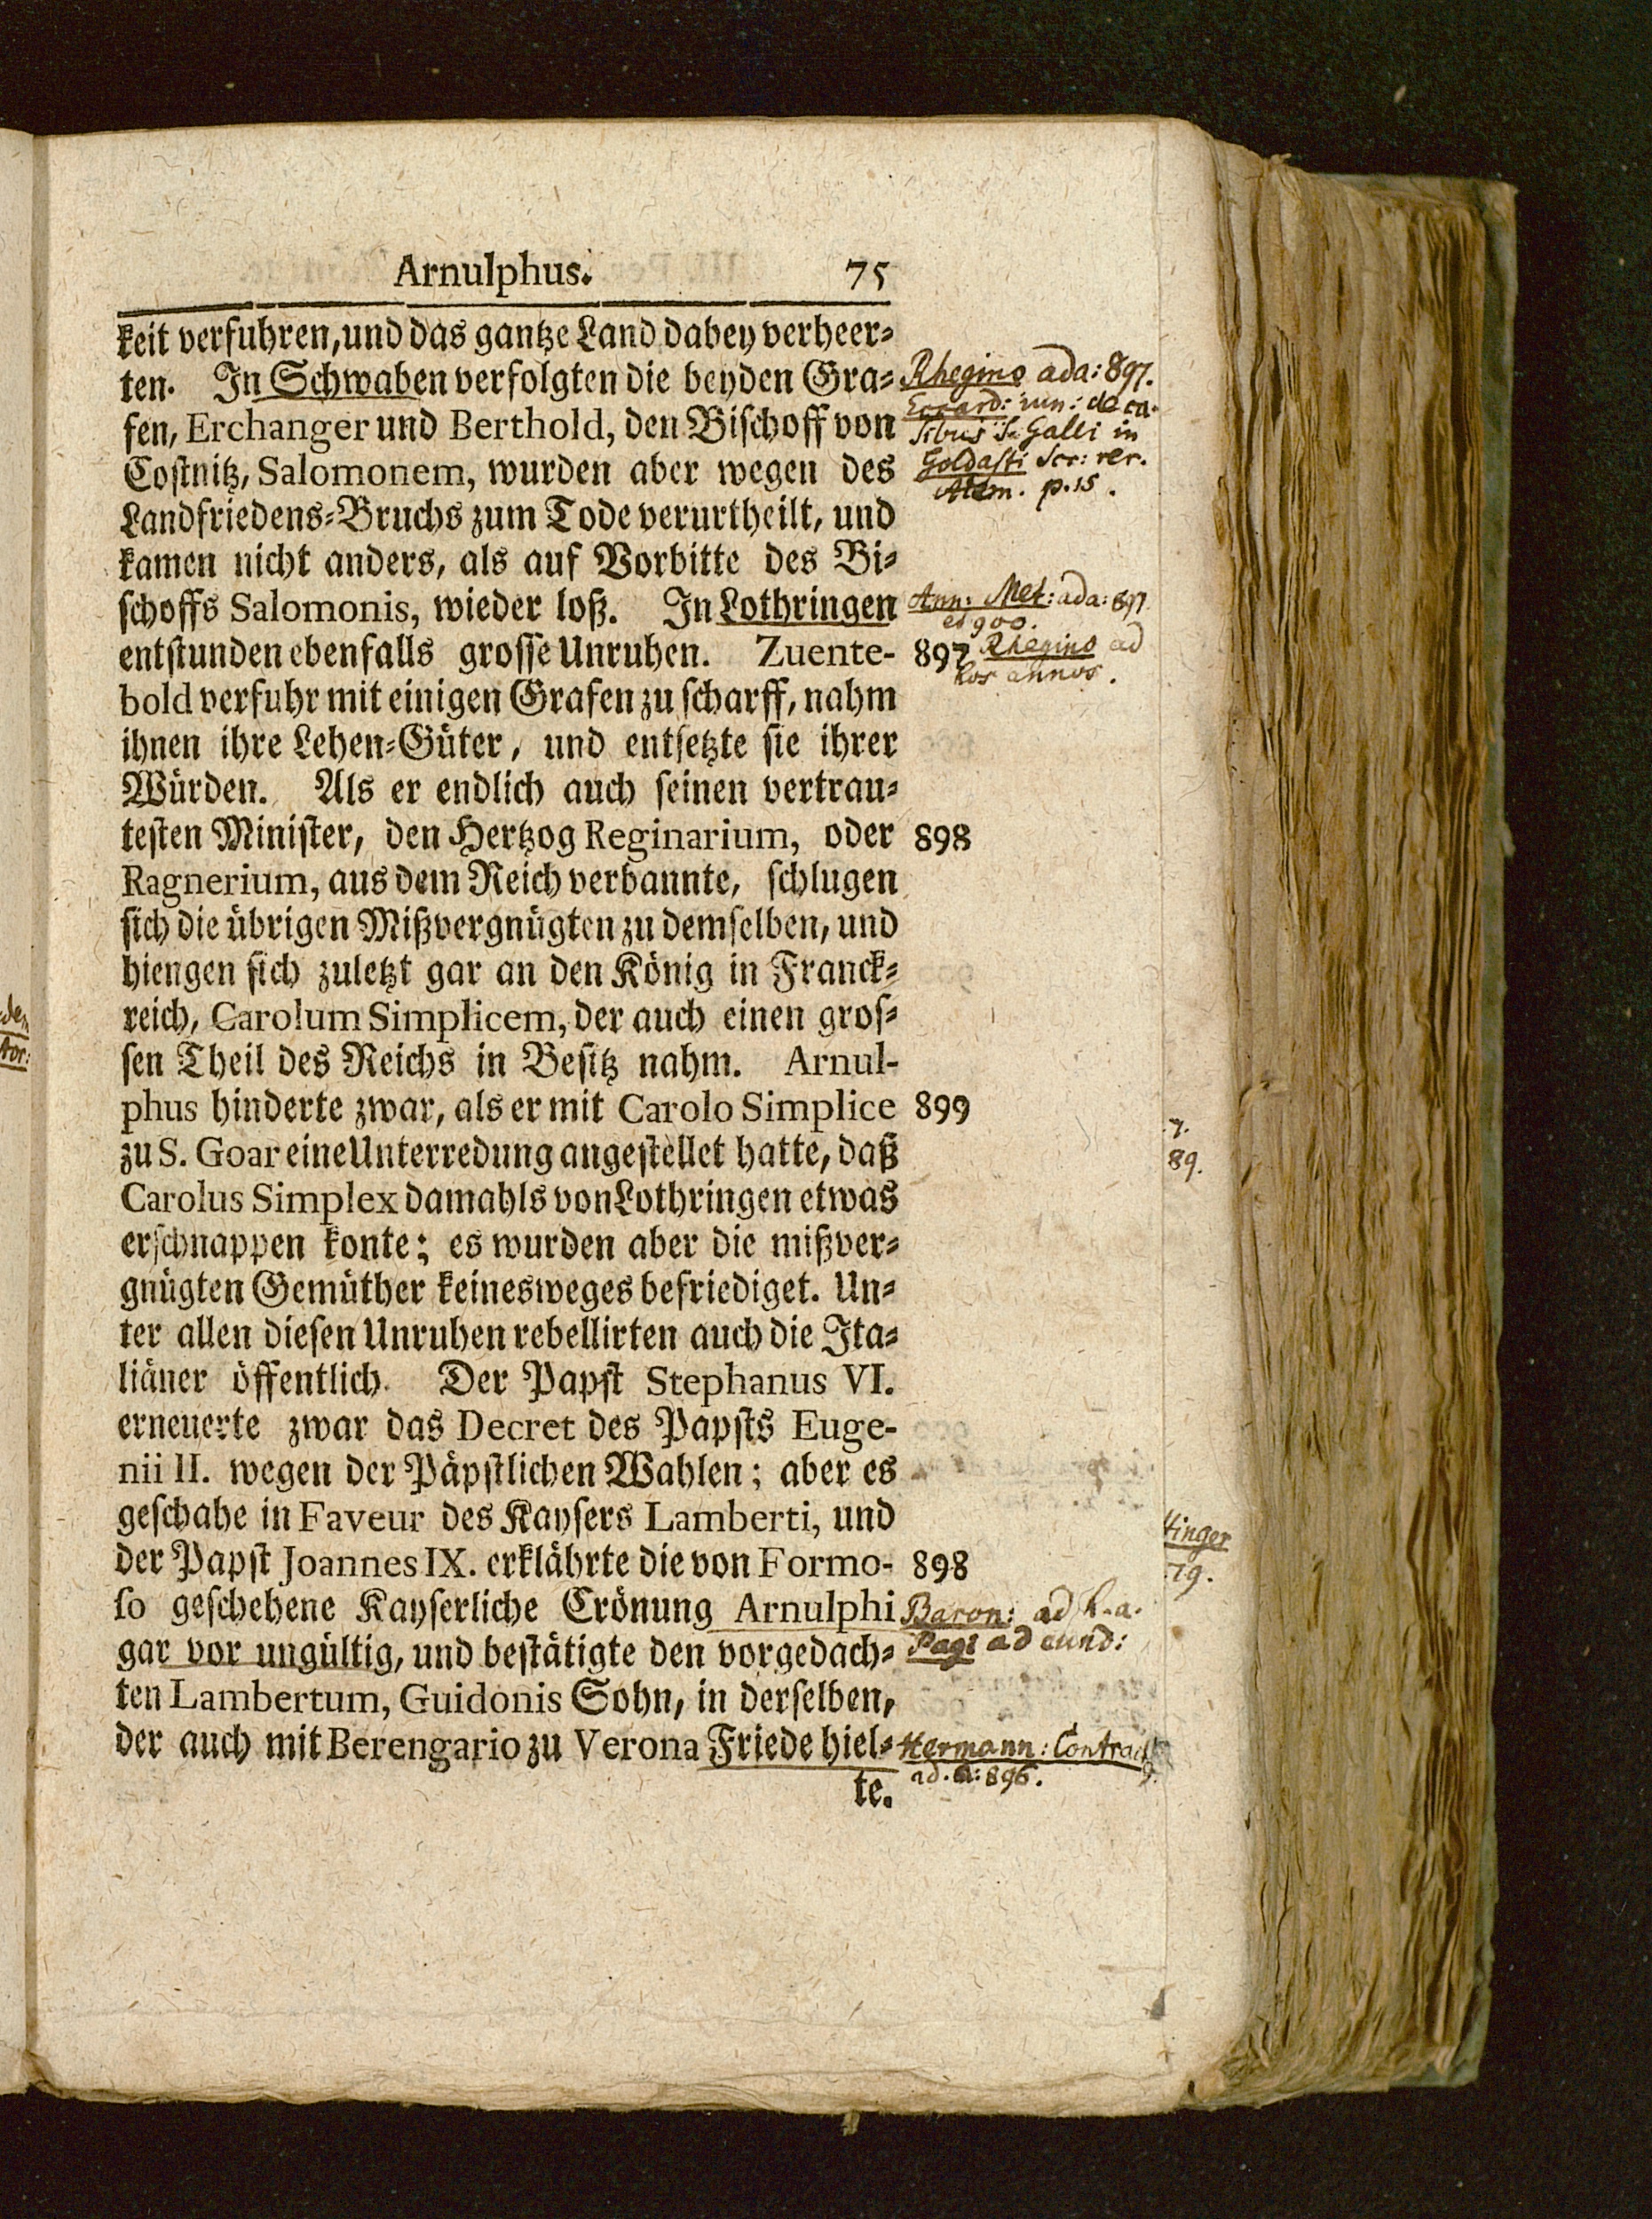 Arnulphus. 75
keit verfuhren, und das gantze Land dabey verheer⸗
ten. In Schwaben verfolgten die beyden Gra⸗
fen, Erchanger und Berthold, den Bischoff von
Costnitz, Salomonem, wurden aber wegen des
Landfriedens⸗Bruchs zum Tode verurtheilt, und
kamen nicht anders, als auf Vorbitte des Bi⸗
schoffs Salomonis, wieder loß. In Lothringen
entstunden ebenfalls grosse Unruhen. Zuente-
bold verfuhr mit einigen Grafen zu scharff, nahm
ihnen ihre Lehen⸗Güter, und entsetzte sie ihrer
Würden. Als er endlich auch seinen vertrau⸗
testen Minister, den Hertzog Reginarium, oder
Ragnerium, aus dem Reich verbannte, schlugen
sich die übrigen Mißvergnügten zu demselben, und
hiengen sich zuletzt gar an den König in Franck⸗
reich, Carolum Simplicem, der auch einen gros⸗
sen Theil des Reichs in Besitz nahm. Arnul-
phus hinderte zwar, als er mit Carolo Simplice
zu S. Goar eine Unterredung angestellet hatte, daß
Carolus Simplex damahls von Lothringen etwas
erschnappen konte; es wurden aber die mißver⸗
gnügten Gemüther keinesweges befriediget. Un⸗
ter allen diesen Unruhen rebellirten auch die Ita⸗
liäner öffentlich. Der Papst Stephanus VI.
erneuerte zwar das Decret des Papsts Euge-
nii II. wegen der Päpstlichen Wahlen; aber es
geschahe in Faveur des Kaysers Lamberti, und
der Papst Joannes IX. erklährte die von Formo-
so geschehene Kayserliche Crönung Arnulphi
gar vor ungültig, und bestätigte den vorgedach⸗
ten Lambertum, Guidonis Sohn, in derselben,
der auch mit Berengario zu Verona Friede hiel⸗
te.
Rhegino ad a: 897.
Eccard: iun: de ca-
sibus S. Galli in
Goldasti Scr: rer.
Alem. p. 15.
Ann: Met: ad a: 897
et 900.
897 Rhegino ad
hos annos.
898
899
898
Baron: ad h. a.
Pagi ad eund:
Hermann: Contract
ad. a: 896.
7.
89.
tinger
79.